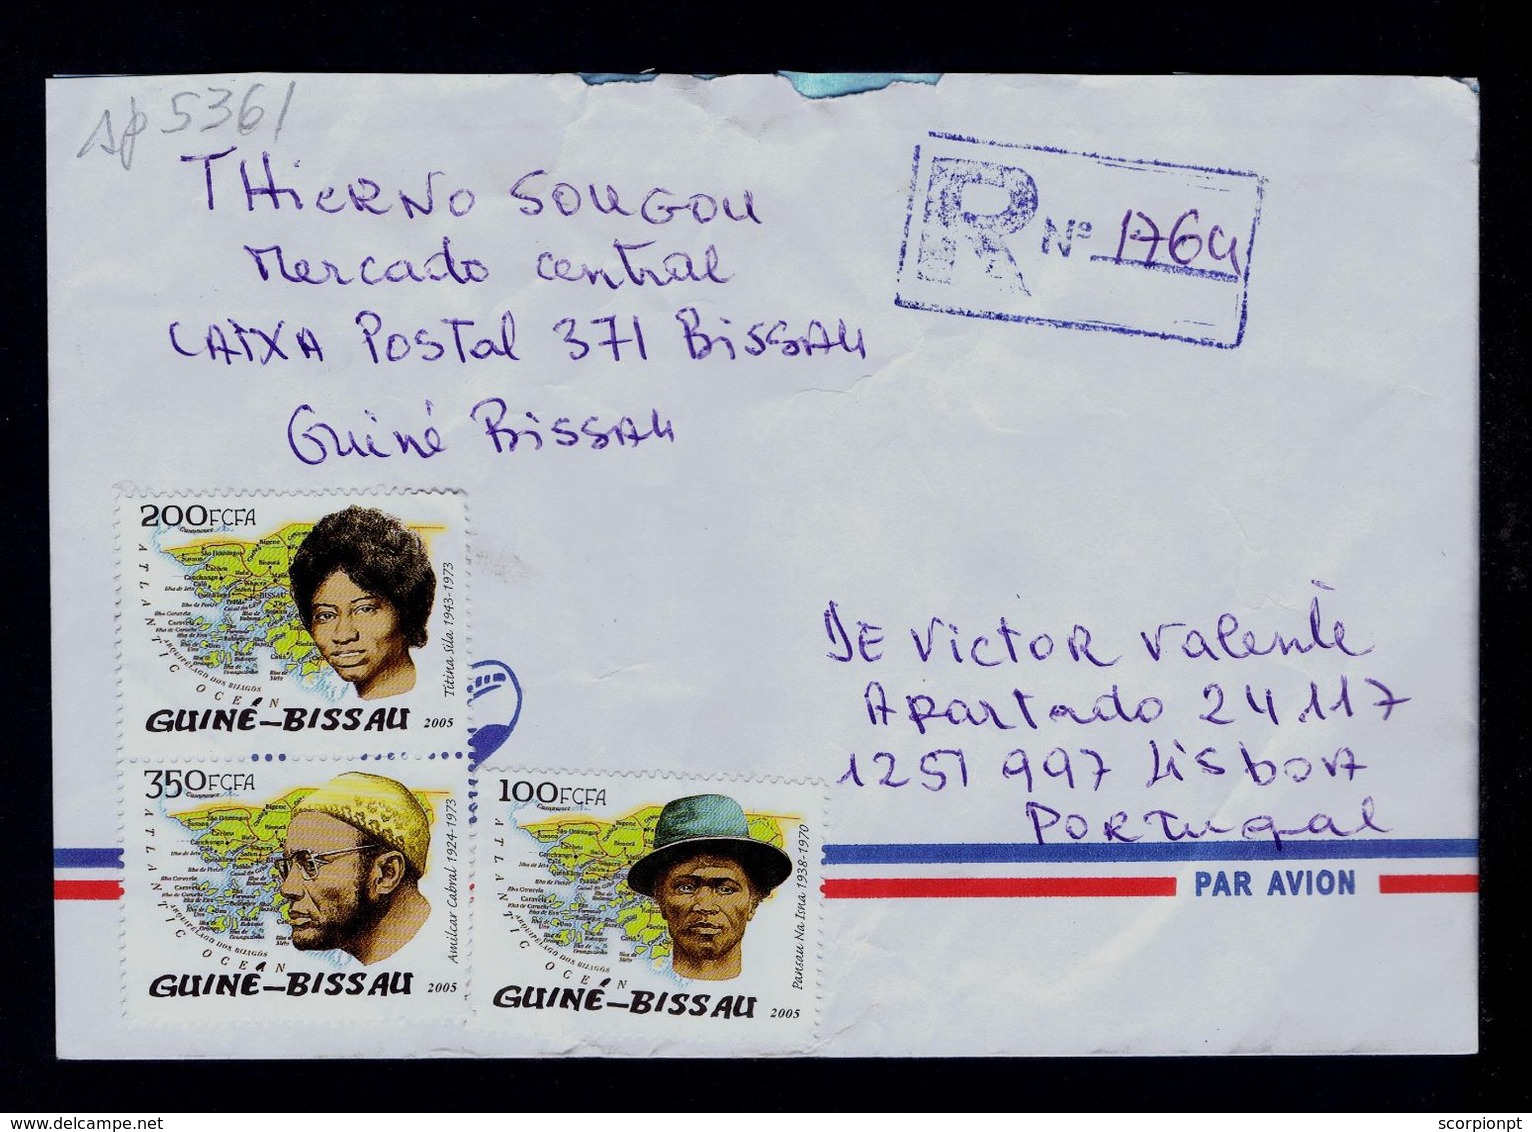 sp 5361
THierno SOUGOU
Mercado central
CAixA Postal 371 BissAu
Guiné BissAu
R Nº 1764
200FCFA
ATLANTIC OCEAN
ARQUIPÉLAGO DOS BIJAGÓS
BISSAU
Titina Sila 1943-1973
GUINÉ-BISSAU 2005
350FCFA
ATLANTIC OCEAN
ARQUIPÉLAGO DOS BIJAGÓS
Amilcar Cabral 1924-1973
GUINÉ-BISSAU 2005
100FCFA
ATLANTIC OCEAN
ARQUIPÉLAGO DOS BIJAGÓS
Pansau Na Isna 1938-1970
GUINÉ-BISSAU 2005
DE Victor Valente
Apartado 24.117
1251 997 Lisboa
Portugal
PAR AVION
delcampe.net
scorpionpt